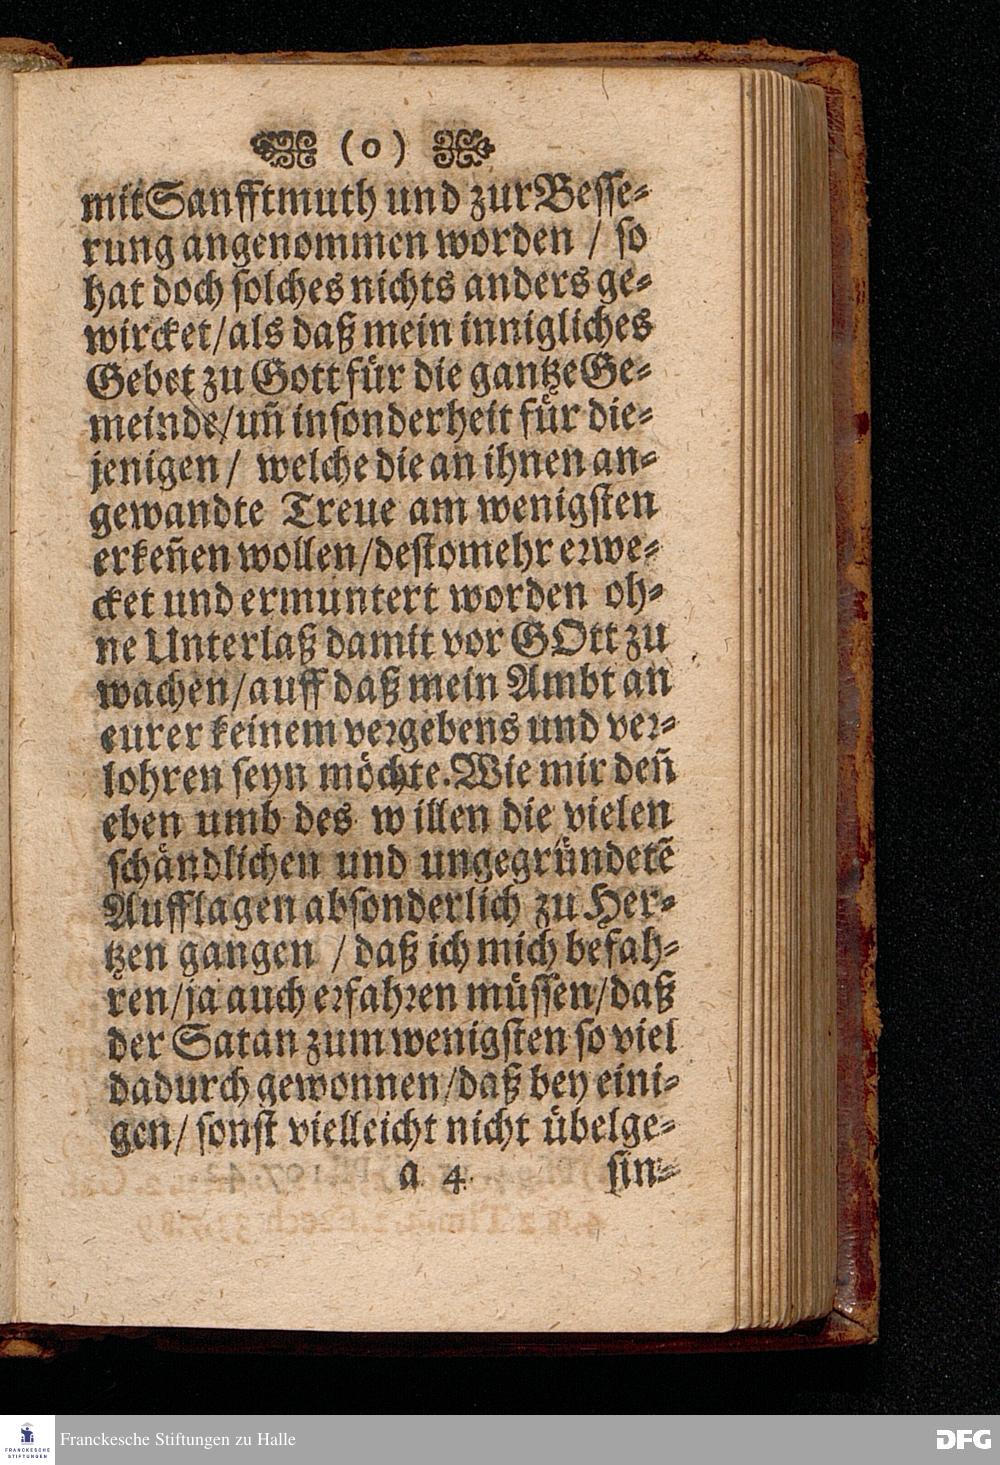 (o)
mit Sanfftmuth und zur Besse-
rung angenommen worden / so
hat doch solches nichts anders ge-
wircket/als daß mein innigliches
Gebet zu Gott für die gantze Ge-
meinde/uñ insonderheit für die-
jenigen / welche die an ihnen an-
gewandte Treue am wenigsten
erkeñen wollen/destomehr erwe-
cket und ermuntert worden oh-
ne Unterlaß damit vor GOtt zu
wachen/auff daß mein Ambt an
eurer keinem vergebens und ver-
lohren seyn möchte. Wie mir deñ
eben umb des willen die vielen
schändlichen und ungegründetẽ
Aufflagen absonderlich zu Her-
tzen gangen / daß ich mich befah-
ren/ja auch erfahren müssen/daß
der Satan zum wenigsten so viel
dadurch gewonnen/daß bey eini-
gen/ sonst vielleicht nicht übelge-
a 4 sin-
FRANCKESCHE STIFTUNGEN
Franckesche Stiftungen zu Halle
DFG